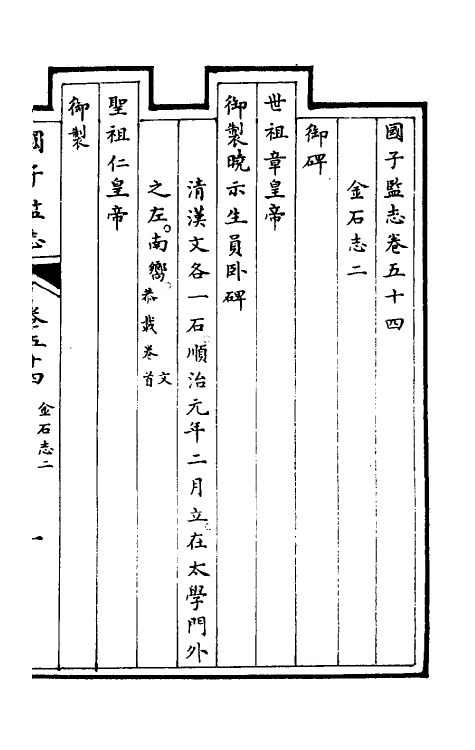 國子監志卷五十四
金石志二
御碑
世祖章皇帝
御製曉示生員卧碑
清漢文各一石順治元年二月立在太學門外
之左南嚮文恭載卷首
聖祖仁皇帝
御製
國子監志
卷五十四
金石志二
一